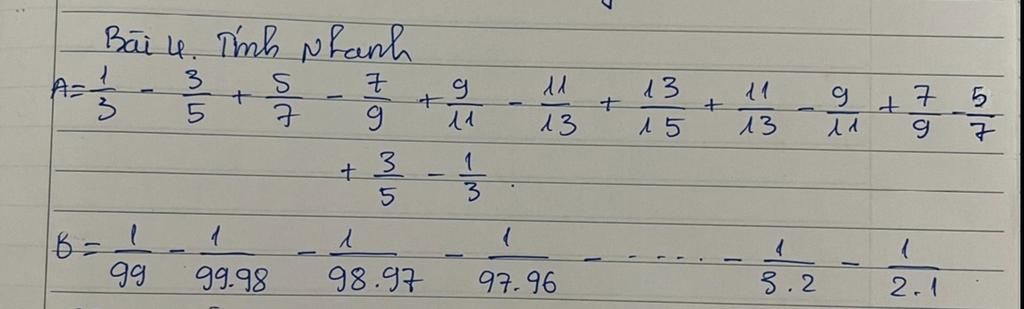 Bài 4. Tính Nhanh
A = 1/3 - 3/5 + 5/7 - 7/9 + 9/11 - 11/13 + 13/15 + 11/13 - 9/11 + 7/9 - 5/7
+ 3/5 - 1/3.
B = 1/99 - 1/99.98 - 1/98.97 - 1/97.96 - ..... - 1/3.2 - 1/2.1